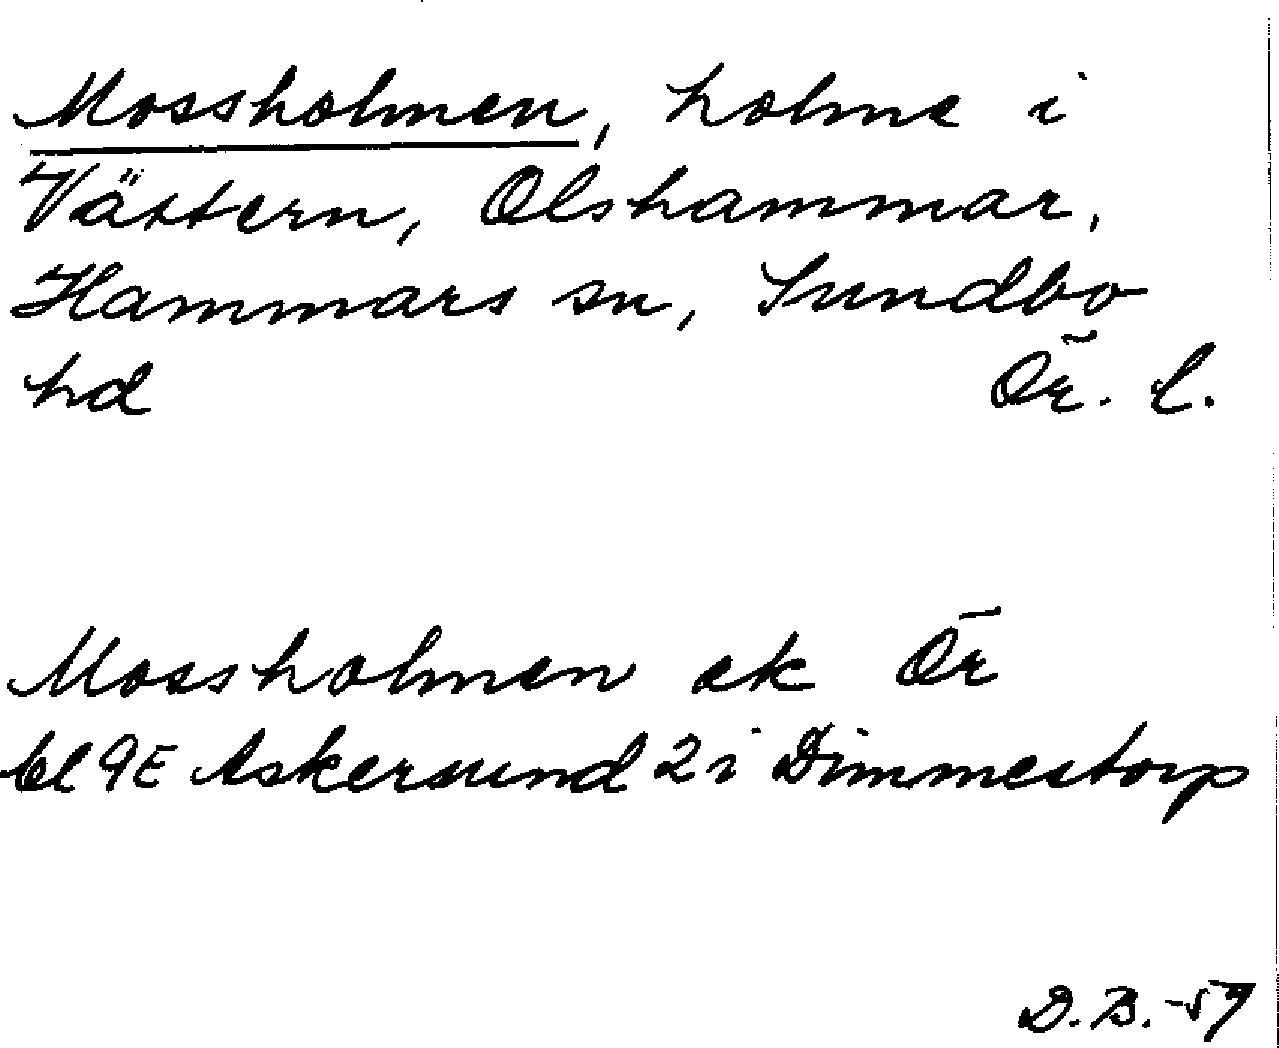 Mossholmen, holme i
Vättern, Olshammar,
Hammars sn, Sundbo
hd Ör. l.
Mossholmen ek Ör
bl 9E Askersund 2 i Dimmestorp
D.B. -57